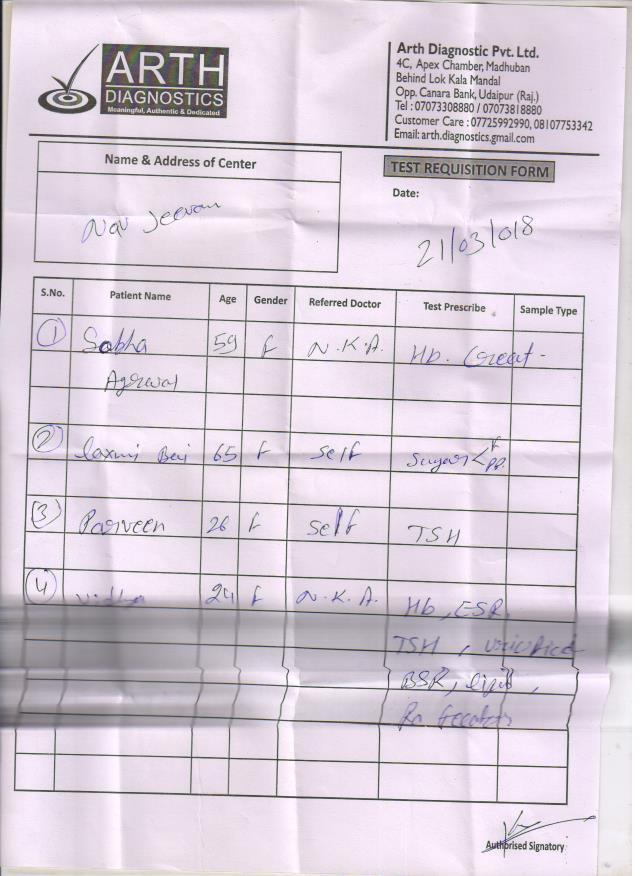 ARTH
DIAGNOSTICS
Meaningful, Authentic & Dedicated
Arth Diagnostic Pvt. Ltd.
4C, Apex Chamber, Madhuban
Behind Lok Kala Mandal
Opp. Canara Bank, Udaipur (Raj.)
Tel : 07073308880 / 07073818880
Customer Care : 07725992990, 08107753342
Email: arth.diagnostics.gmail.com
Name & Address of Center
TEST REQUISITION FORM
Nav Jeevan
Date:
21/03/018
S.No. Patient Name Age Gender Referred Doctor Test Prescribe Sample Type
1 Sobha 59 F N.K.A. Hb. Creat-
Agrwal
2 laxmi Bai 65 F Self Sugar < F
PP.
3 Parveen 26 F Self TSH
4 24 F N.K.A. Hb, ESR,
TSH, uric Acid
BSR, lipid,
Ra
Authorised Signatory